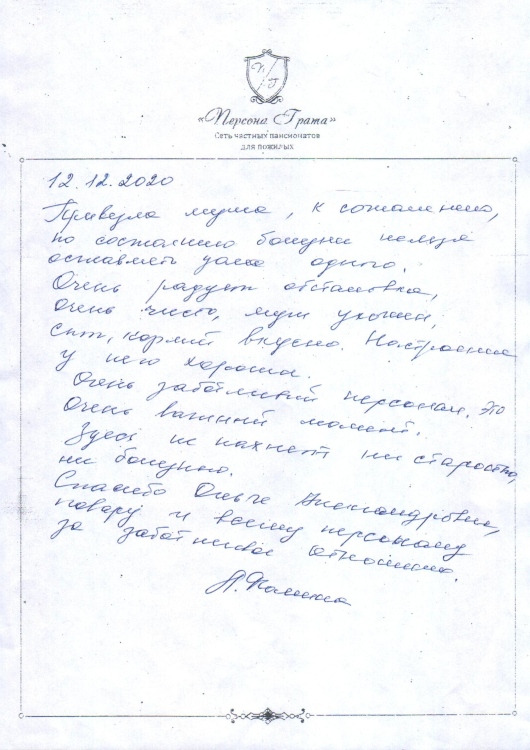 П Г
«Персона Грата»
Сеть частных пансионатов
для пожилых
12.12.2020
Привезла мужа, к сожалению,
по состоянию болезни нельзя
оставлять дома одного.
Очень радует обстановка,
очень чисто, муж ухожен,
сыт, кормят вкусно. Настроение
у него хорошее.
Очень заботливый персонал. Это
очень важный момент.
Здесь не пахнет ни старостью,
ни болезнью.
Спасибо Ольге Александровне,
повару и всему персоналу
за заботливое отношение.